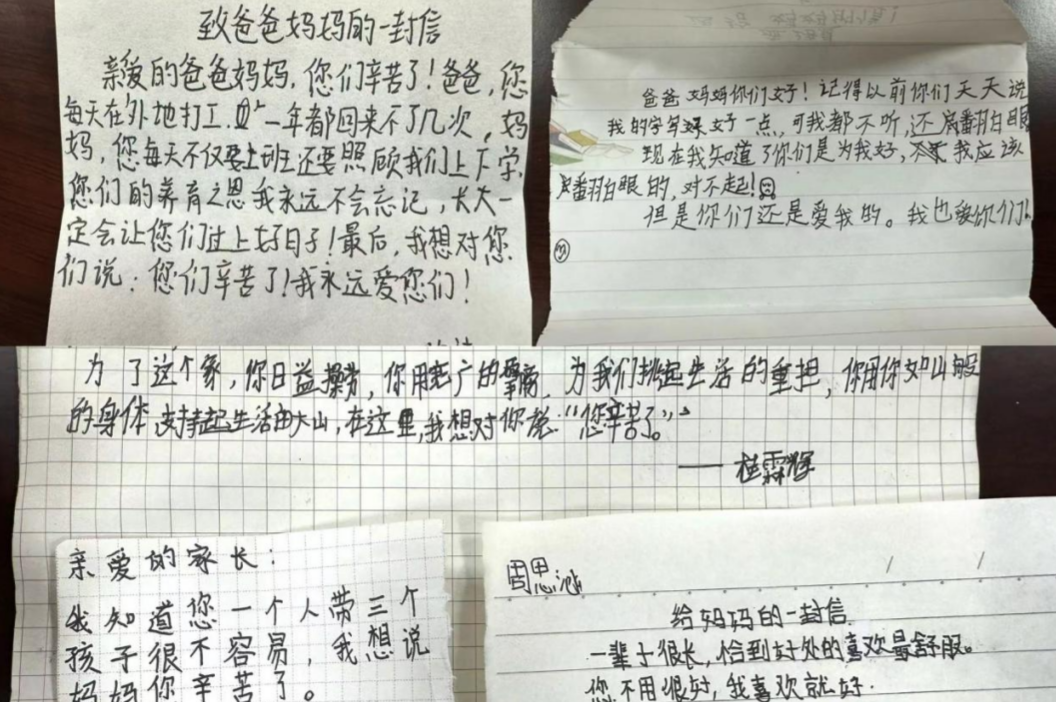 致爸爸妈妈的一封信
亲爱的爸爸妈妈，您们辛苦了！爸爸，您
每天在外地打工，一年都回来不了几次，妈
妈，您每天不仅要上班还要照顾我们上下学，
您们的养育之恩我永远不会忘记，长大一
定会让您们过上好日子！最后，我想对您
们说：您们辛苦了！我永远爱您们！
爸爸妈妈你们好！记得以前你们天天说
我的字写好一点，可我都不听，还翻白眼
现在我知道了你们是为我好，我应该
翻白眼的，对不起！
但是你们还是爱我的。我也爱你们！
为了这个家，你日益操劳，你用宽广的肩膀，为我们挑起生活的重担，你用你如山般
的身体，支持起生活的大山，在这里，我想对你说“您辛苦了。”
——桂霖辉
亲爱的家长：
我知道您一个人带三个
孩子很不容易，我想说
妈妈你辛苦了。
周思涵
给妈妈的一封信
一辈子很长，恰到好处的喜欢最舒服。
您不用很好，我喜欢就好。